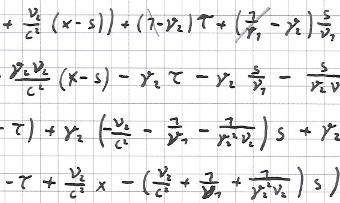 + v₂/c² (x-s)) + (1-γ₂) τ + (1/γ₁ - γ₂) s/v₁
γ₂v₂/c² (x-s) - γ₂ τ - γ₂ s/v₁ - s/γ₂v
- τ) + γ₂ (-v₂/c² - 1/v₁ - 1/γ₂²v₂) s + γ₂
- τ + v₂/c² x - (v₂/c² + 1/v₁ + 1/γ₂²v₂) s)